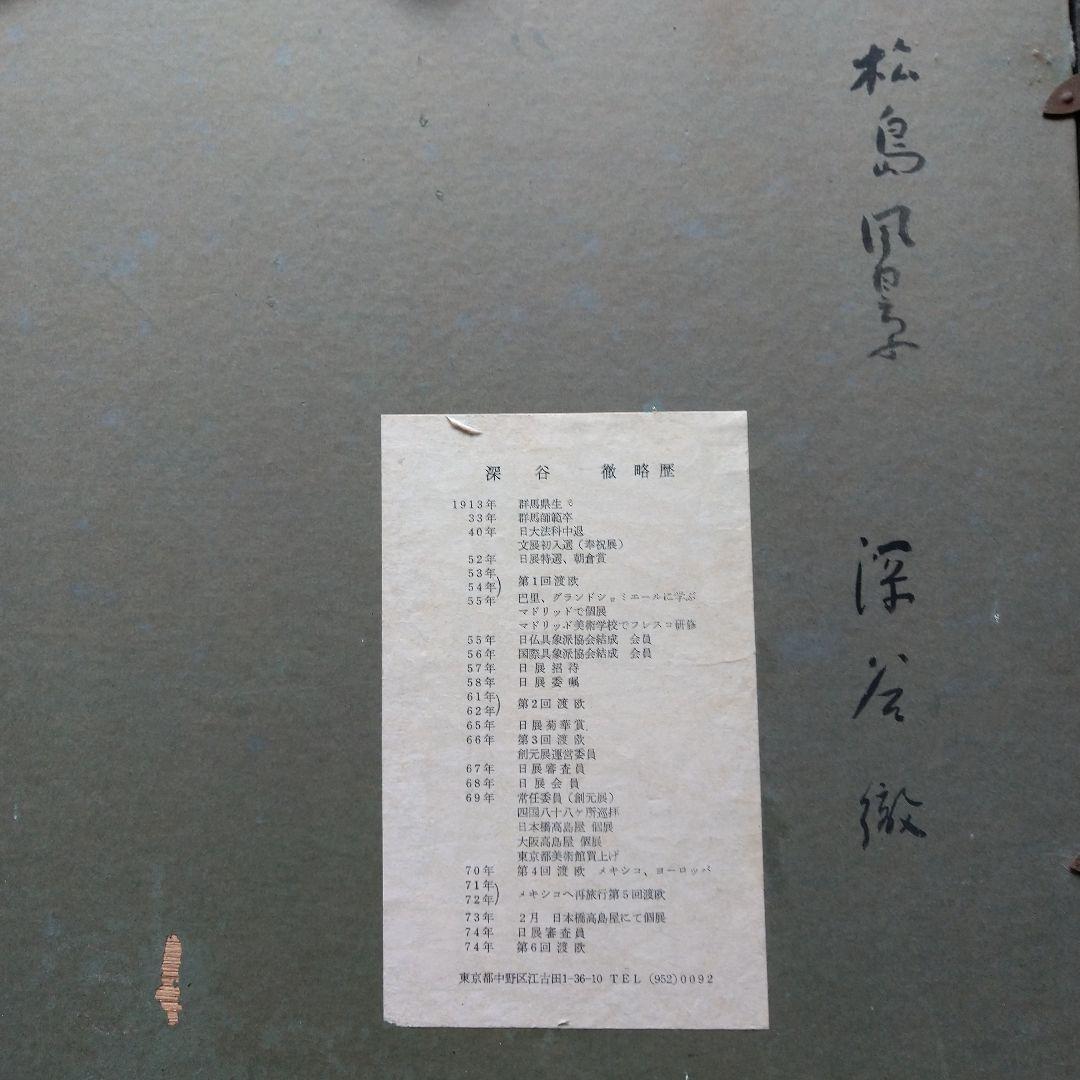 松島風景 深谷徹
深谷 徹略歴
1913年 群馬県生る
33年 群馬師範卒
40年 日大法科中退
文展初入選(奉祝展)
52年 日展特選、朝倉賞
53年
54年) 第1回渡欧
55年 巴里、グランドショミエールに学ぶ
マドリッドで個展
マドリッド美術学校でフレスコ研修
55年 日仏具象派協会結成 会員
56年 国際具象派協会結成 会員
57年 日展招待
58年 日展委嘱
61年
62年) 第2回渡欧
65年 日展菊華賞
66年 第3回渡欧
創元展運営委員
67年 日展審査員
68年 日展会員
69年 常任委員(創元展)
四国八十八ケ所巡拝
日本橋高島屋 個展
大阪高島屋 個展
東京都美術館買上げ
70年 第4回渡欧 メキシコ、ヨーロッパ
71年
72年) メキシコへ再旅行第5回渡欧
73年 2月 日本橋高島屋にて個展
74年 日展審査員
74年 第6回渡欧
東京都中野区江古田1-36-10 TEL (952)0092